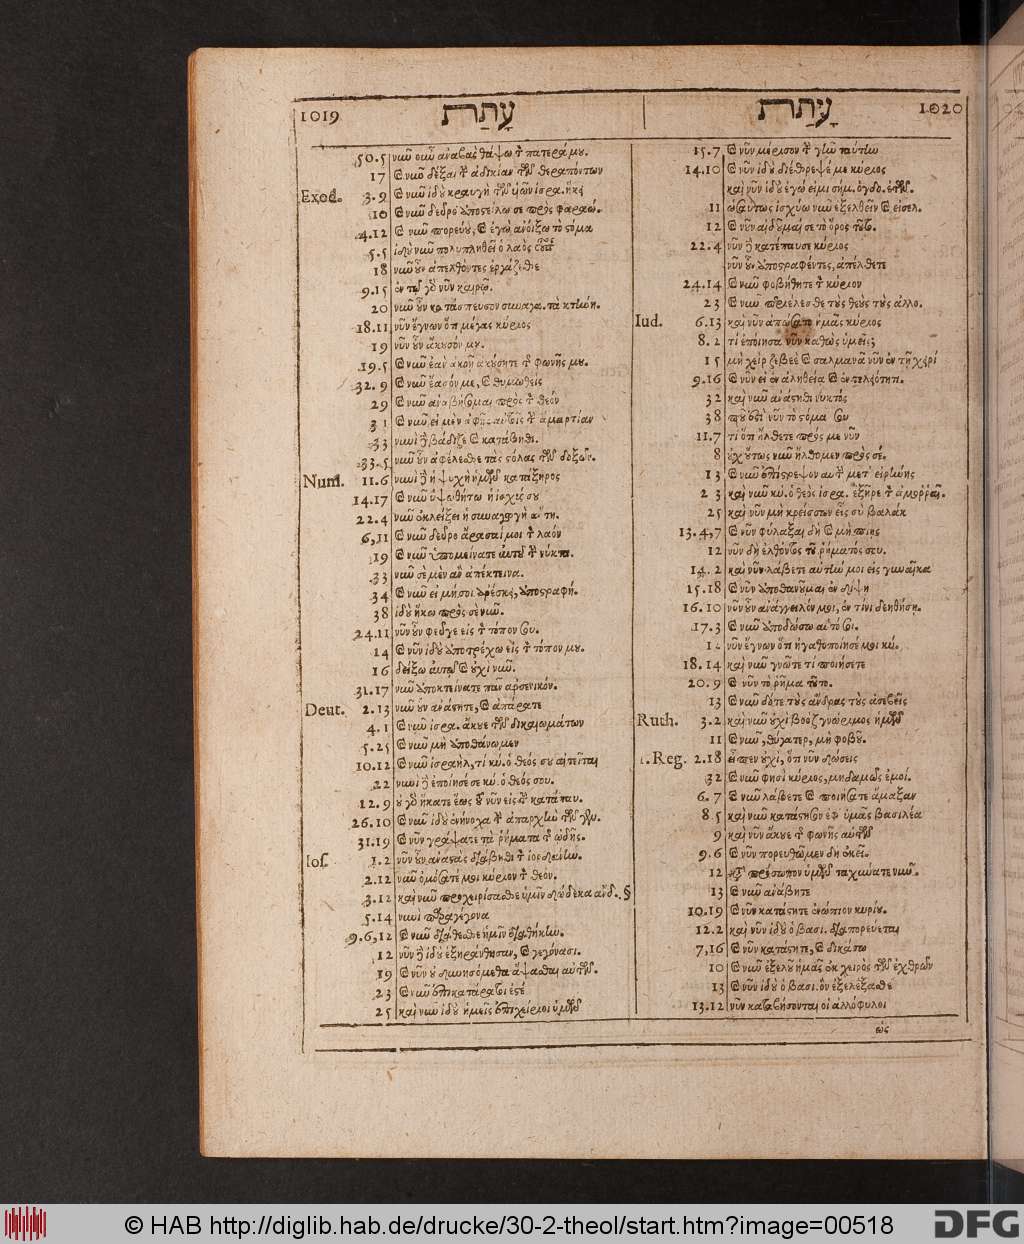 1019 עָתַת
50.5 νυῦ οὖν ἀναβὰς θάψω τ πατερά μου.
17 καὶ νυῦ δέξαι τ ἀδικίαν τῶν θεραπόντων
Exod. 3.9 καὶ νυῦ ἰδοὺ κραυγὴ τῶν υἱῶν ἰσρα. ἥκει
10 καὶ νυῦ δεῦρο ἀποστείλω σε πρὸς φαραώ.
4.12 καὶ νυῦ πορεύου, καὶ ἐγὼ ἀνοίξω τὸ στόμα
5.5 ἰδοὺ νυῦ πολυπληθεῖ ὁ λαὸς
18 νυῦ οὖν ἀπελθόντες ἐργάζεσθε
9.15 ἐν τῷ γὸ νῦν καιρῷ.
20 νυῦ οὖν κατάσπευσον συναγα. τὰ κτήνη.
18.11 νῦν ἔγνων ὅτι μέγας κύριος
19 νῦν οὖν ἄκουσόν μου.
19.5 καὶ νυῦ ἐὰν ἀκοῇ ἀκούσητε τ φωνῆς μου.
32.9 καὶ νυῦ ἔασόν με, καὶ θυμωθείς
29 καὶ νυῦ ἀναβήσομαι πρὸς τ θεόν
31 καὶ νυῦ εἰ μὲν ἀφῇς αὐτοῖς τ ἁμαρτίαν
33 νυνὶ δὲ βάδιζε καὶ κατάβηθι.
33.5 νυῦ οὖν ἀφέλεσθε τὰς στολὰς τῶν δοξῶν.
Num. 11.6 νυνὶ δὲ ἡ ψυχὴ ἡμῶν κατάξηρος
14.17 καὶ νυῦ ὑψωθήτω ἡ ἰσχύς σου
22.4 νυῦ ἐκλείξει ἡ συναγωγὴ αὕτη.
6,11 καὶ νυῦ δεῦρο ἄρασαί μοι τ λαόν
19 καὶ νυῦ ὑπομείνατε αὐτοῦ τ νύκτα.
33 νυῦ σὲ μὲν ἂν ἀπέκτεινα.
34 καὶ νυῦ εἰ μή σοι ἀρέσκει, ἀποστραφή.
38 ἰδοὺ ἥκω πρὸς σὲ νυῦ.
24.11 νῦν οὖν φεῦγε εἰς τ τόπον σου.
14 καὶ νῦν ἰδοὺ ἀποτρέχω εἰς τ τόπον μου.
16 δείξω αὐτῷ καὶ οὐχὶ νυῦ.
31.17 νυῦ ἀποκτείνατε πᾶν ἀρσενικόν.
Deut. 2.13 νυῦ οὖν ἀνάστητε, καὶ ἀπάρατε
4.1 καὶ νυῦ ἰσρα. ἄκουε τῶν δικαιωμάτων
5.25 καὶ νυῦ μὴ ἀποθάνωμεν
10.12 καὶ νυῦ ἰσραὴλ, τί κύ. ὁ θεός σου αἰτεῖται
22 νυνὶ δὲ ἐποίησέ σε κύ. ὁ θεός σου.
12.9 οὐ γὸ ἥκατε ἕως τοῦ νῦν εἰς τ κατάπαυ.
26.10 καὶ νυῦ ἰδοὺ ἐνήνοχα τ ἀπαρχὴν τῶν γεν.
31.19 καὶ νῦν γράψατε τὰ ῥήματα τ ᾠδῆς.
Ios. 1.2 νῦν οὖν ἀναστὰς διάβηθι τ ἰορδάνην.
2.12 νυῦ ὀμόσατέ μοι κύριον τ θεόν.
3.12 καὶ νυῦ προχειρίσασθε ὑμῖν δώδεκα ἀνδ. §
5.14 νυνὶ παραγέγονα
9.6,12 καὶ νυῦ διάθεσθε ἡμῖν διαθήκην.
12 νῦν δὲ ἰδοὺ ἐξηράνθησαν, καὶ γεγόνασι.
19 καὶ νῦν οὐ δυνησόμεθα ἅψασθαι αὐτῶν.
23 καὶ νυῦ ἐπικατάρατοί ἐστέ
25 καὶ νυῦ ἰδοὺ ἡμεῖς ὑποχείριοι ὑμῶν
עָיְּתַת 1020
15.7 καὶ νῦν μέρισον τ γῆν ταύτην
14.10 καὶ νῦν ἰδοὺ διέθρεψέ με κύριος
καὶ νῦν ἰδοὺ ἐγώ εἰμι σήμ. ὀγδο. ἐτῶν.
11 ὡσαύτως ἰσχύω νυῦ ἐξελθεῖν καὶ εἰσελ.
12 καὶ νῦν αἰτοῦμαί σε τὸ ὄρος τοῦτο.
22.4 νῦν δὲ κατέπαυσε κύριος
νῦν οὖν ἀποστραφέντες, ἀπέλθετε
24.14 καὶ νυῦ φοβήθητε τ κύριον
23 καὶ νυῦ περιέλεσθε τοὺς θεοὺς τοὺς ἀλλο.
Iud. 6.13 καὶ νῦν ἀπώσατο ἡμᾶς κύριος
8.2 τί ἐποίησα νῦν καθὼς ὑμεῖς;
15 μὴ χεὶρ ζεβεὲ καὶ σαλμανὰ νῦν ἐν τῇ χειρί
9.16 καὶ νῦν εἰ ἐν ἀληθείᾳ καὶ ἐν τελειότητι.
32 καὶ νυῦ ἀνάστηθι νυκτὸς
38 ποῦ ἐστὶ νῦν τὸ στόμα σου
11.7 τί ὅτι ἤλθετε πρός με νῦν
8 οὐχ οὕτως νυῦ ἤλθομεν πρὸς σέ.
13 καὶ νυῦ ἐπίστρεψον αὐτ μετ' εἰρήνης
23 καὶ νυῦ κύ. ὁ θεὸς ἰσρα. ἐξῇρε τ ἀμορραῖ.
25 καὶ νῦν μὴ κρείσσων εἶς σὺ βαλάκ
13.4,7 καὶ νῦν φύλαξαι δὴ καὶ μὴ πίῃς
12 νῦν δὴ ἐλθόντος τοῦ ῥήματός σου.
14.2 καὶ νῦν λάβετε αὐτήν μοι εἰς γυναῖκα
15.18 καὶ νῦν ἀποθανοῦμαι ἐν δίψῃ
16.10 νῦν οὖν ἀνάγγειλόν μοι, ἐν τίνι δεηθήσῃ.
17.3 καὶ νυῦ ἀποδώσω αὐτό σοι.
νῦν ἔγνων ὅτι ἠγαθοποίησέ μοι κύ.
18.14 καὶ νυῦ γνῶτε τί ποιήσετε
20.9 καὶ νῦν τὸ ῥῆμα τοῦτο.
13 καὶ νυῦ δότε τοὺς ἄνδρας τοὺς ἀσεβεῖς
Ruth. 3.2 καὶ νυῦ οὐχὶ βοὸζ γνώριμος ἡμῶν
11 καὶ νυῦ, θύγατερ, μὴ φοβοῦ.
1.Reg. 2.18 εἶπεν οὐχὶ, ὅτι νῦν δώσεις
32 καὶ νυῦ φησὶ κύριος, μηδαμῶς ἐμοί.
6.7 καὶ νυῦ λάβετε καὶ ποιήσατε ἅμαξαν
8.5 καὶ νυῦ κατάστησον ἐφ ὑμᾶς βασιλέα
9 καὶ νῦν ἄκουε τ φωνῆς αὐτῶν
9.6 καὶ νῦν πορευθῶμεν δὴ ἐκεῖ.
12 κατὰ πρόσωπον ὑμῶν ταχύνατε νυῦ.
13 καὶ νυῦ ἀνάβητε
10.19 καὶ νῦν κατάστητε ἐνώπιον κυρίου.
12.2 καὶ νῦν ἰδοὺ ὁ βασι. διαπορεύεται
7,16 καὶ νῦν κατάστητε, καὶ δικάσω
10 καὶ νυῦ ἐξελοῦ ἡμᾶς ἐκ χειρὸς τῶν ἐχθρῶν
13 καὶ νῦν ἰδοὺ ὁ βασι. ὃν ἐξελέξασθε
13.12 νῦν καταβήσονται οἱ ἀλλόφυλοι
ὡς
© HAB http://diglib.hab.de/drucke/30-2-theol/start.htm?image=00518
DFG